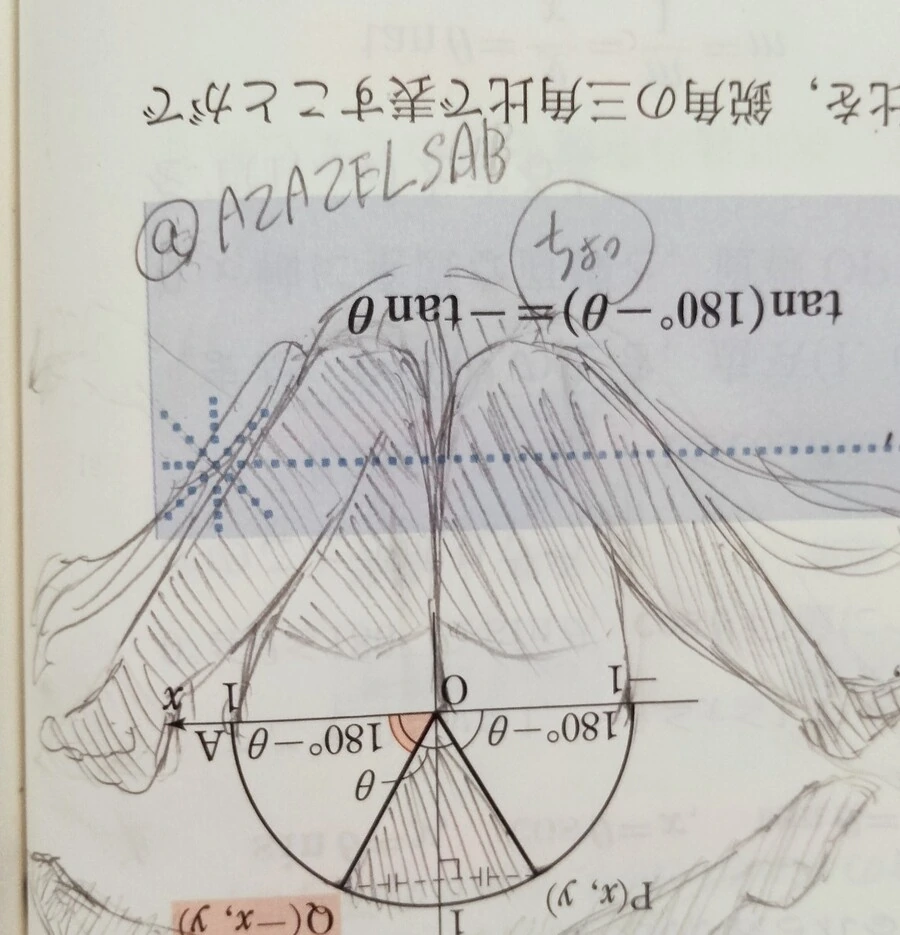 比を，鋭角の三角比で表すことがで
@AZAZELSAB
tan(180°−θ)=−tanθ
−1
O
1
x
180°−θ
180°−θ
A
θ
P(x, y)
Q(−x, y)
1